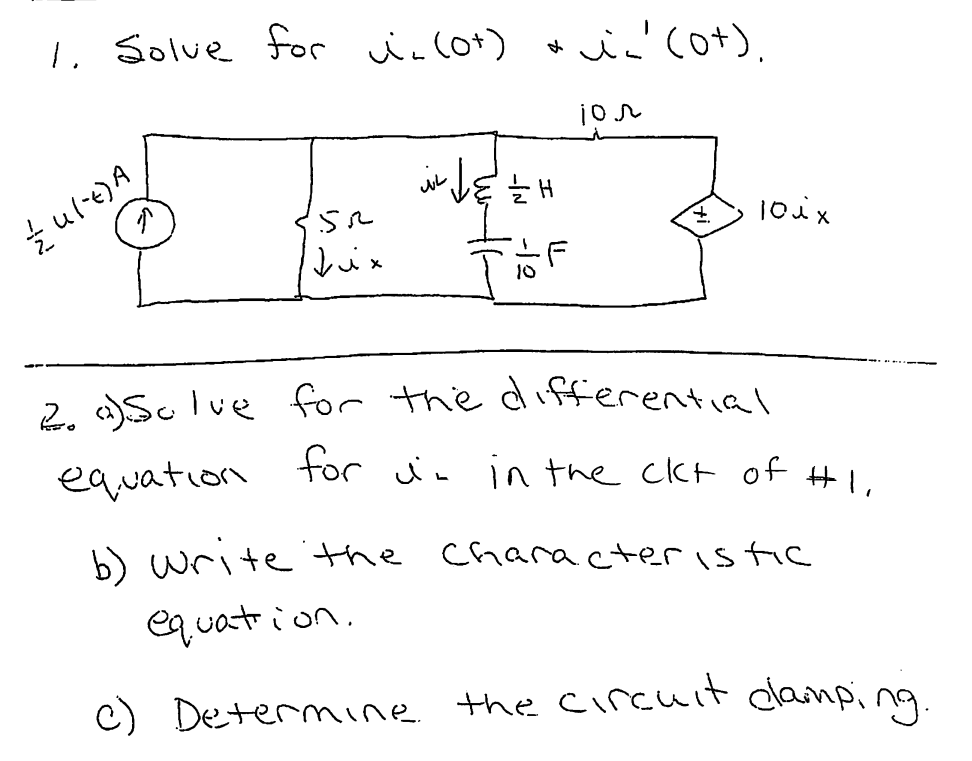 1. Solve for iL(0+) & iL'(0+).
10 Ω
1/2 u(-t) A
5 Ω
ix
iL
1/2 H
1/10 F
±
10ix
2. a) Solve for the differential
equation for iL in the ckt of #1.
b) Write the characteristic
equation.
c) Determine the circuit damping.